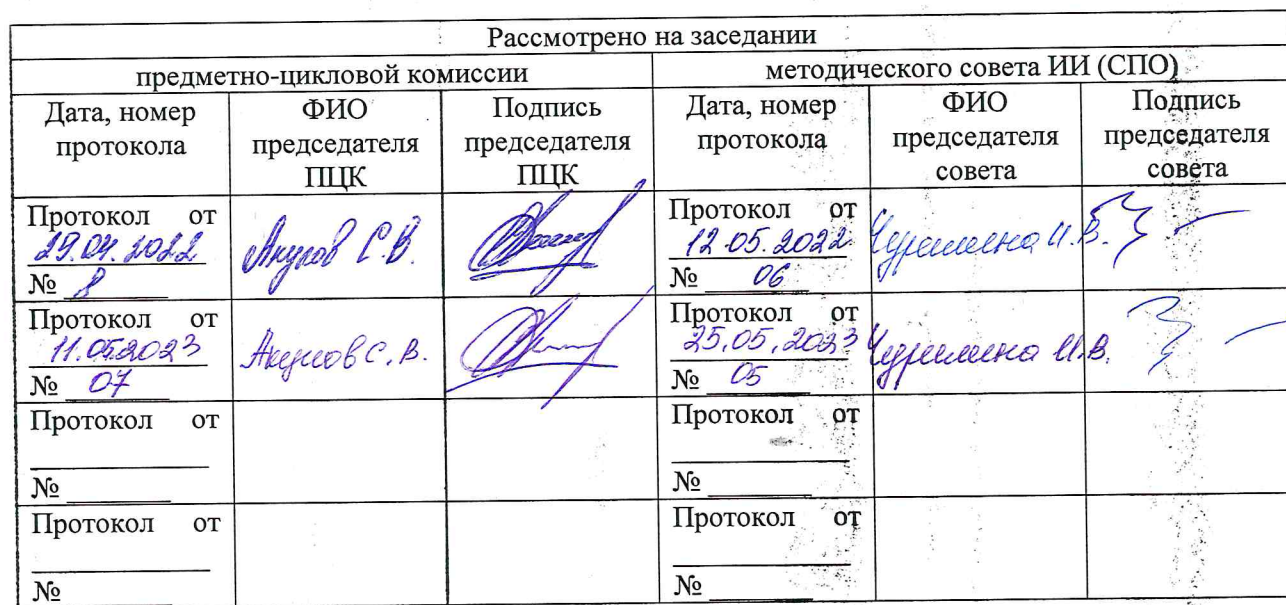 Рассмотрено на заседании
предметно-цикловой комиссии
методического совета ИИ (СПО)
Дата, номер протокола
ФИО председателя ПЦК
Подпись председателя ПЦК
Дата, номер протокола
ФИО председателя совета
Подпись председателя совета
Протокол от
29.04.2022
№ 8
С.В.
Протокол от
12.05.2022
№ 06
И.В.
Протокол от
11.05.2023
№ 07
С.В.
Протокол от
25.05.2023
№ 05
И.В.
Протокол от
№
Протокол от
№
Протокол от
№
Протокол от
№